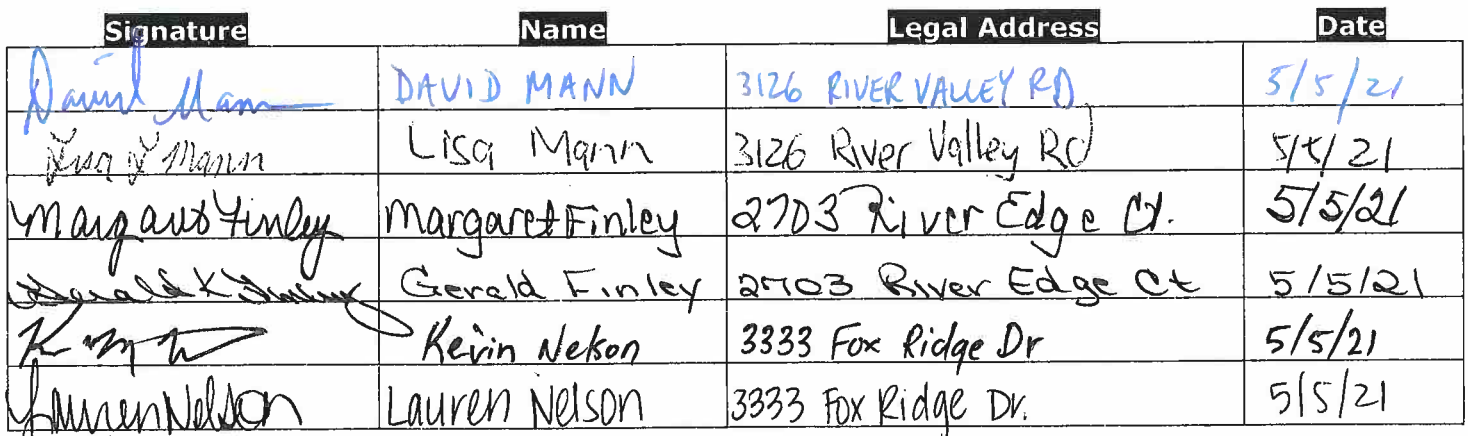 Signature Name Legal Address Date
David Mann DAVID MANN 3126 RIVER VALLEY RD 5/5/21
Lisa L Mann Lisa Mann 3126 River Valley Rd 5/5/21
Margaret Finley Margaret Finley 2703 River Edge Ct. 5/5/21
Gerald K Finley Gerald Finley 2703 River Edge Ct 5/5/21
Kevin Nelson 3333 Fox Ridge Dr 5/5/21
Lauren Nelson Lauren Nelson 3333 Fox Ridge Dr. 5/5/21